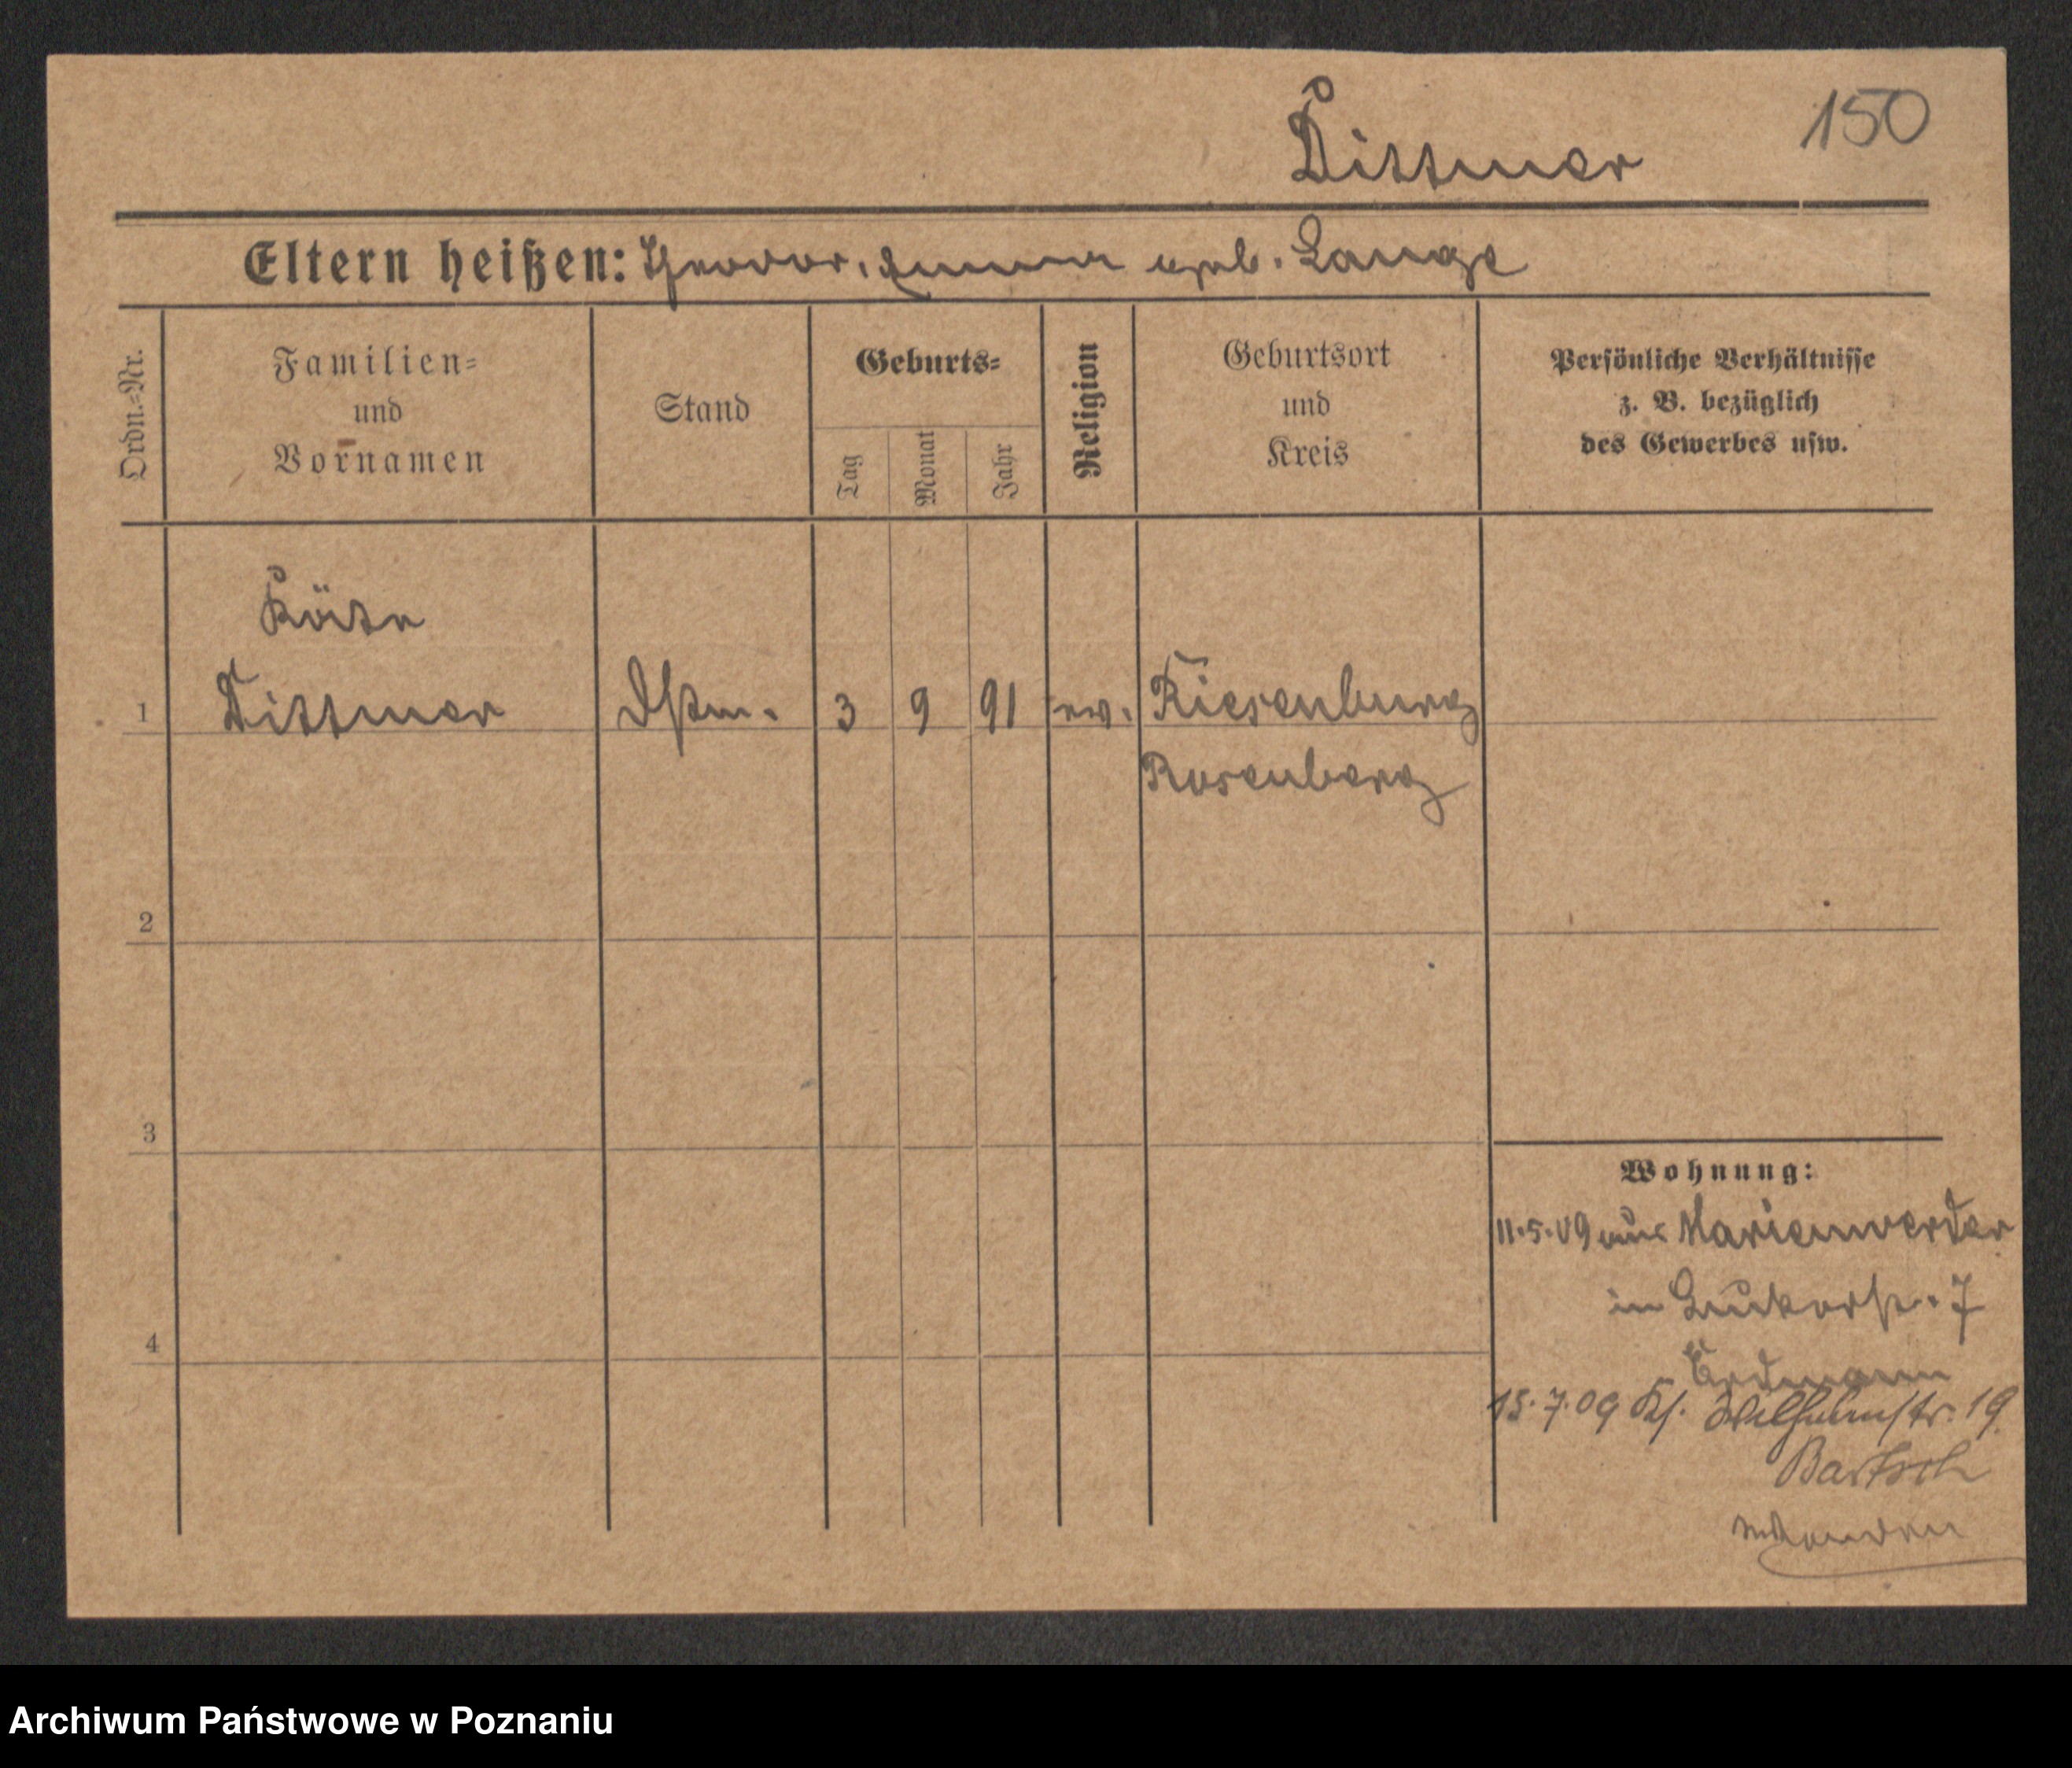 Dittmer
150
Eltern heißen: Theodor, Emma geb. Lange
Ordn.=Nr.
Familien=
und
Vornamen
Stand
Geburts=
Tag
Monat
Jahr
Religion
Geburtsort
und
Kreis
Persönliche Verhältnisse
z. B. bezüglich
des Gewerbes usw.
Käte
1 Dittmer 3 9 91 ev. Riesenburg
Rosenberg
2
3
4
Wohnung:
11.5.09 aus Marienwerder
in 7
Erdmann
15.7.09 Wilhelmstr. 19
Bartsch
Archiwum Państwowe w Poznaniu